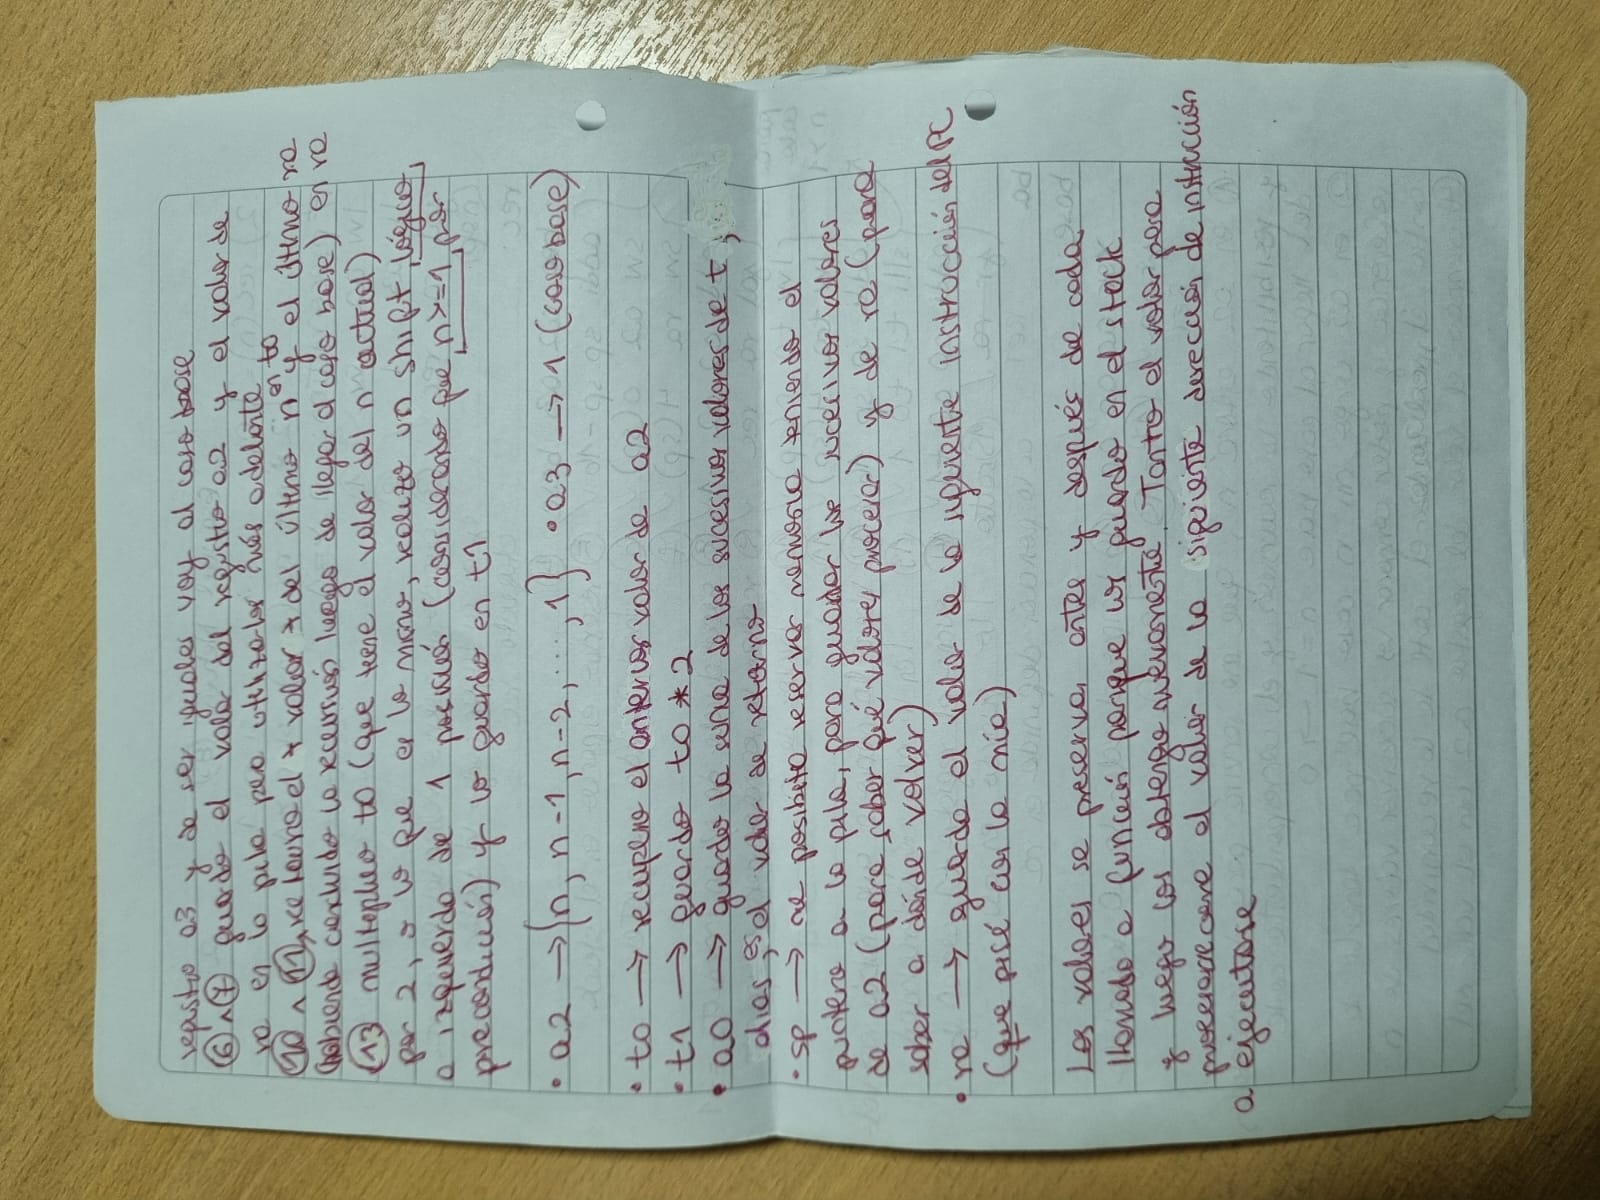 registro a3 y de ser iguales voy al caso base
⑥ ∧ ⑦ guardo el valor del registro a2 y el valor de
ra en la pila para utilizarlos más adelante
⑩ ∧ ⑪ retorno el valor del último n en t0 y el último ra
(habiendo concluido la recursión luego de llegar al caso base) en ra
⑬ multiplico t0 (que tiene el valor del n actual)
por 2, o lo que es lo mismo, realizo un shift lógico
a izquierda de 1 posición (considerando que n>=1 por
precondición) y lo guardo en t1
• a2 → {n, n-1, n-2, ..., 1} • a3 → 1 (caso base)
• t0 → recupero el anterior valor de a2
• t1 → guardo t0 * 2
• a0 → guarda la suma de los sucesivos valores de t,
es el valor de retorno
• sp → me posibilita reservar memoria teniendo el
puntero a la pila, para guardar los sucesivos valores
de a2 (para saber qué valores procesar) y de ra (para
saber a dónde volver)
• ra → guarda el valor de la siguiente instrucción del PC
(que pisé con la mía)
Los valores se preservan antes y después de cada
llamado a función porque los guardo en el stack
y luego los obtengo nuevamente. Tanto el valor para
el valor de la siguiente dirección de instrucción
a ejecutarse